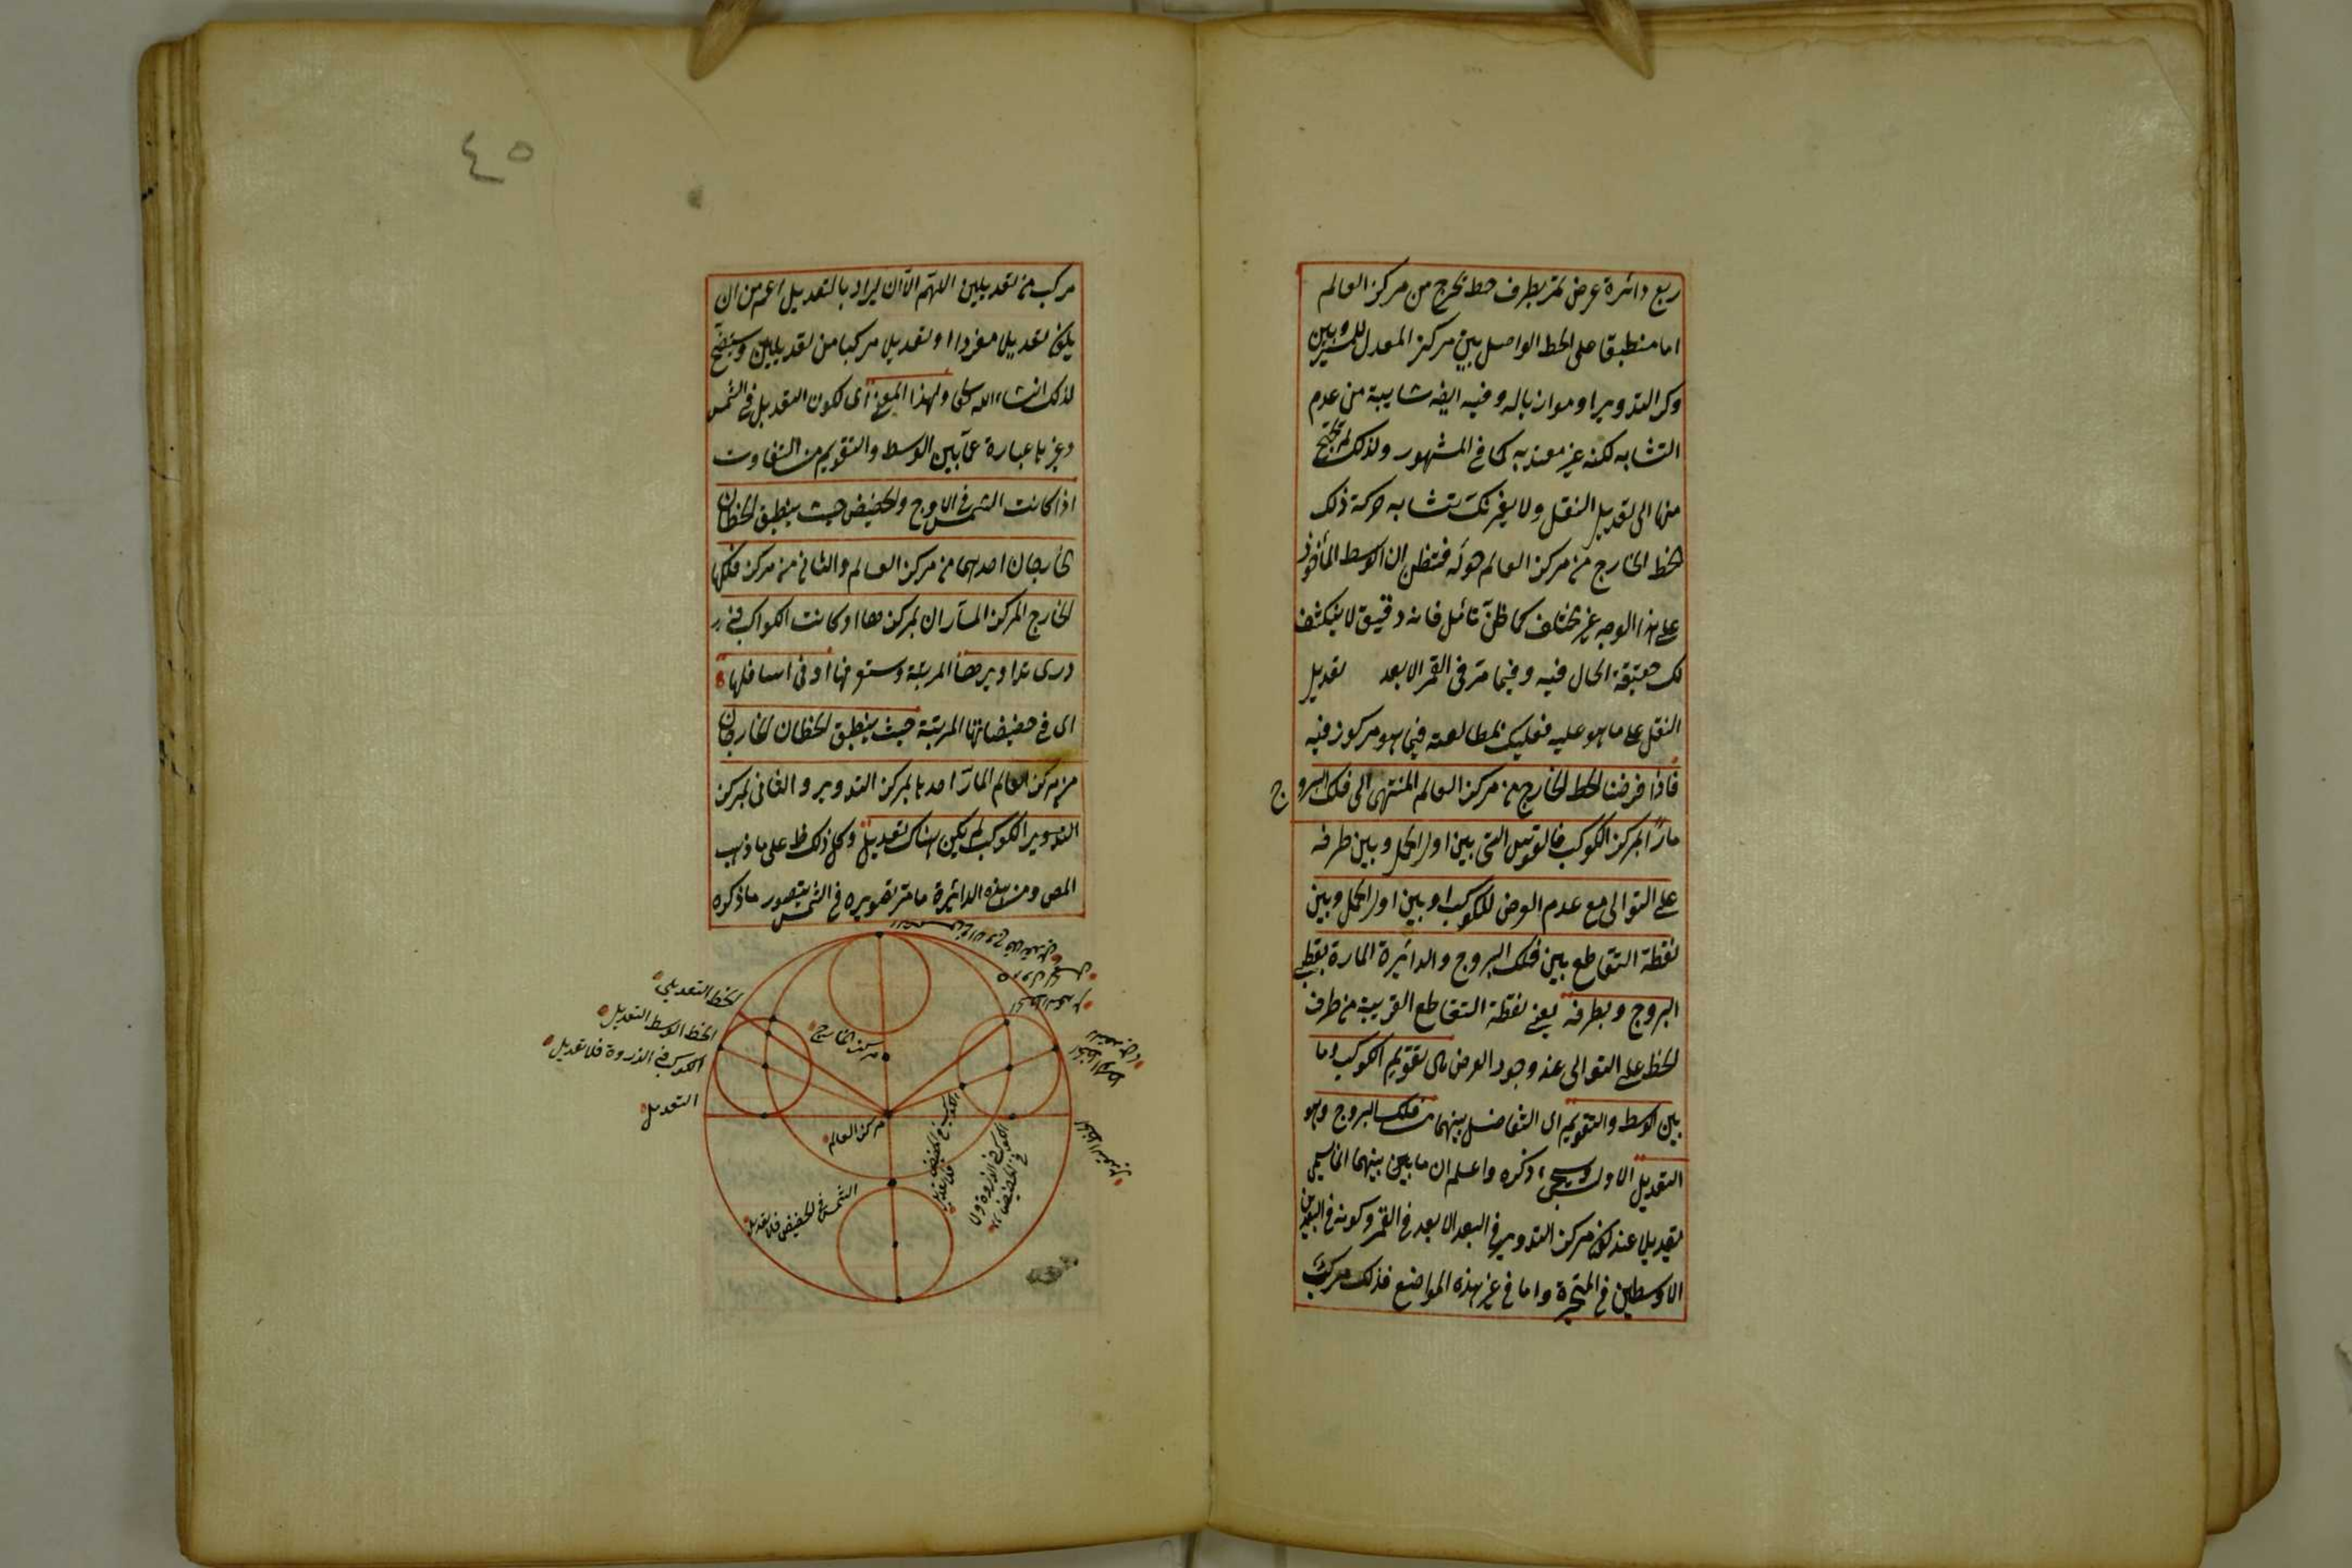 ربع دائرة عرض تمر بطرف خط تخرج من مركز العالم
اما منطبقا على الخط الواصل بين مركز المعدل للمسير وبين
مركز التدوير او موازيا له وفيه ايضا شايبة من عدم
التشابه لكنه غير معتد به كما في المشهور ولذلك لم يحتج
منها الى تعديل النقل ولا يغرنك تشابه حركة ذلك
الخط الخارج من مركز العالم حوله فتظن ان الوسط المأخوذ
على هذا الوجه غير مختلف كما ظن تأمل فانه دقيق لا ينكشف
لك حقيقة الحال فيه وفيما مر في القمر الا بعد تعديل
النقل على ما هو عليه فعليك بمطالعته فيما هو مركوز فيه
فاذا فرضنا الخط الخارج من مركز العالم المنتهى الى فلك البروج
مارا بمركز الكوكب فالقوس التي بين اول الحمل وبين طرفه
على التوالى مع عدم العرض للكوكب او بين اول الحمل وبين
نقطة التقاطع بين فلك البروج والدائرة المارة بقطبى
البروج وبطرفه يعنى نقطة التقاطع القريبة من طرف
الخط على التوالى عند وجود العرض هى تقويم الكوكب وما
بين الوسط والتقويم اى التفاضل بينهما من فلك البروج وهو
التعديل الاول وسيجيء ذكره واعلم ان ما بين بينهما انما يسمى
تعديلا عند كون مركز التدوير في البعد الابعد في القمر وكونه في البعدين
الاوسطين في المتحيرة واما في غير هذه المواضع فذلك مركب
٤٥
مركب من تعديلين اللهم الا ان يراد بالتعديل اعم من ان
يكون تعديلا مفردا او تعديلا مركبا من تعديلين وسيتضح
لذلك انشاء الله تعالى ولهذا المعنى اى لكون التعديل في الشمس
وغيرها عبارة عما بين الوسط والتقويم من التفاوت
اذا كانت الشمس في الاوج والحضيض حيث ينطبق الخطان
الخارجان احدهما من مركز العالم والثاني من مركز فلكها
الخارج المركز الماران بمركزها او كانت الكواكب في
ذرى تداويرها المرئية وستعرفها او في اسافلها
اى في حضيضاتها المرئية حيث ينطبق الخطان الخارجان
من مركز العالم المار احدها بمركز التدوير والثانى بمركز
التدوير الكوكب لم يكن هناك تعديل وكل ذلك ظ على ما ذهب
المص ومن هذه الدائرة ما مر تصويره في الشمس يتصور ما ذكره
الخط التعديلي
الخط الوسط التعديل
الكوكب في الذروة فلا تعديل
التعديل
مركز الخارج
مركز العالم
الكوكب في الحضيض فلا تعديل
الكوكب في الذروة
في الحضيض
الشمس في الحضيض فلا تعديل